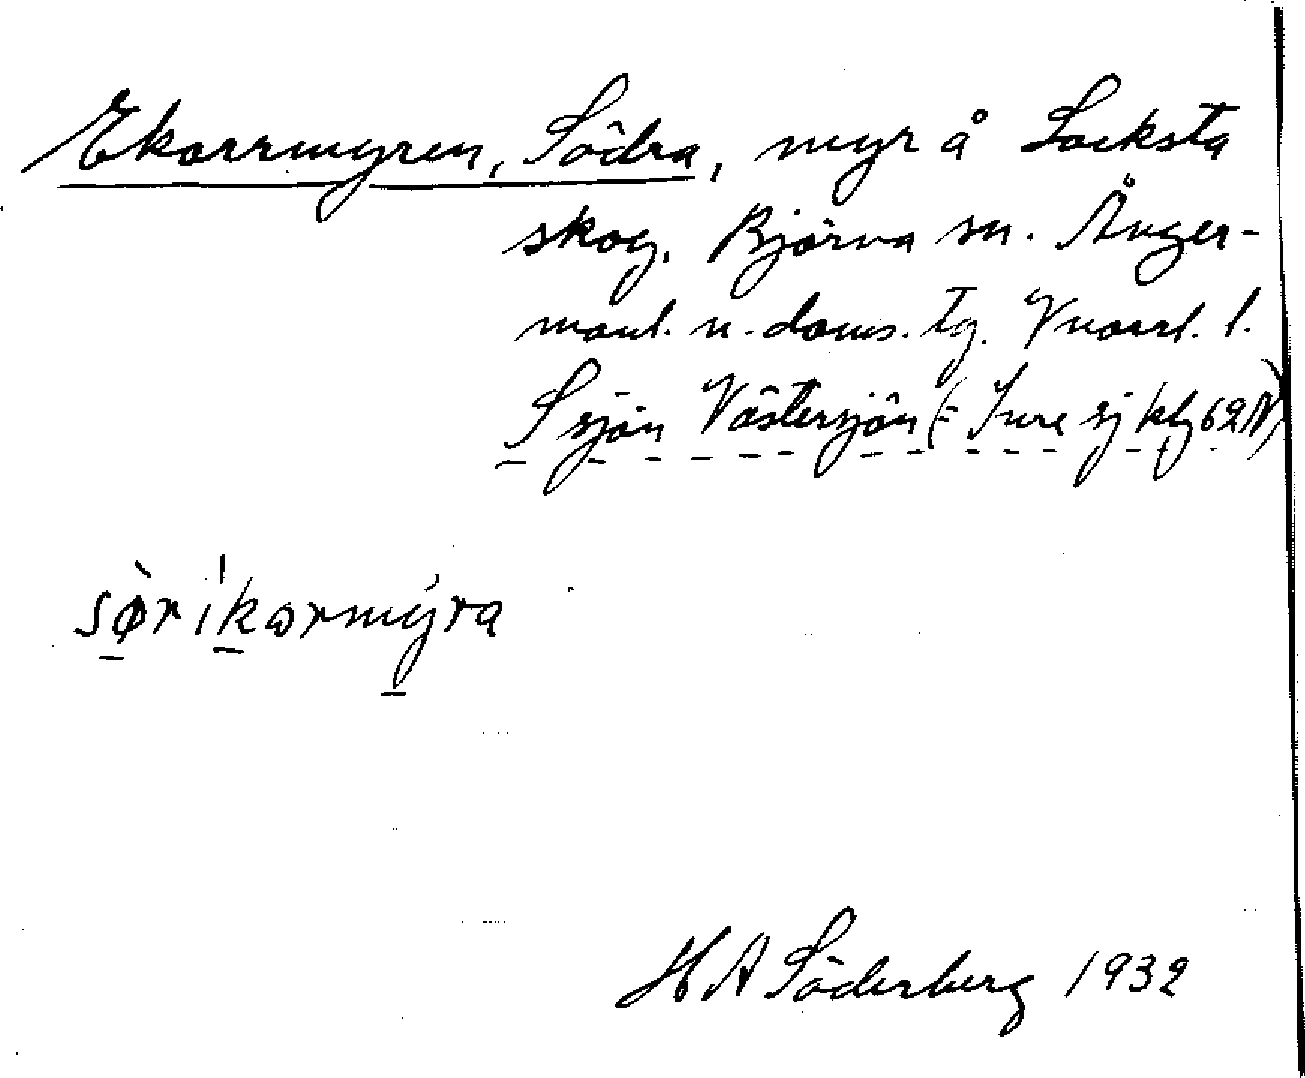 Ekorrmyren, Södra, myr å Locksta
skog, Björna sn. Ånger-
manl. n. doms. tg. Vnorrl. l.
S sjön Västersjön (= Sure sj kbl 62 N)
sørikormyra
H A Söderberg 1932